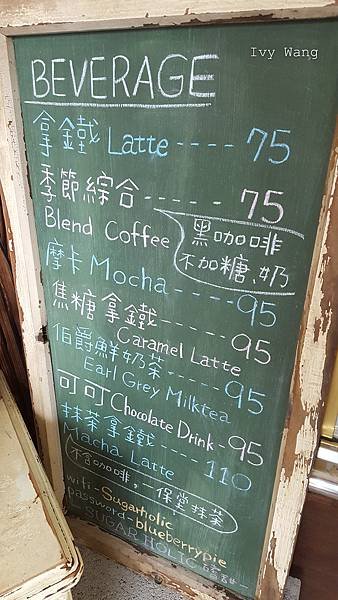 Ivy Wang
BEVERAGE
拿鐵 Latte ---- 75
季節綜合 ----- 75
Blend Coffee
黑咖啡
不加糖、奶
摩卡 Mocha ----- 95
焦糖拿鐵 ----- 95
Caramel Latte
伯爵鮮奶茶 ---- 95
Earl Grey Milktea
可可 Chocolate Drink - 95
抹茶拿鐵 ----- 110
Macha Latte
不含咖啡。一保堂抹茶
wifi - Sugarholic
password - blueberrypie
SUGAR HOLIC